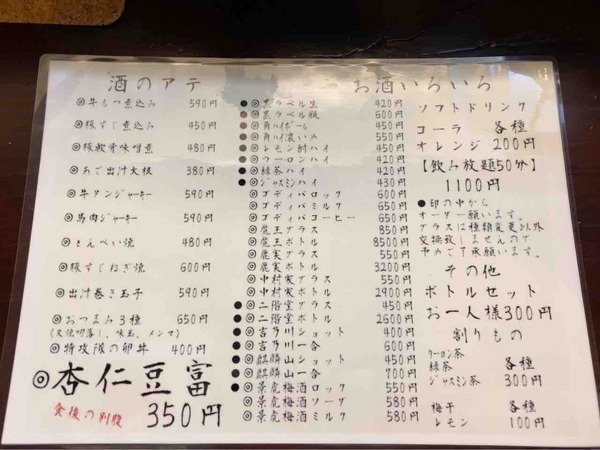 酒のアテ
◎牛もつ煮込み 590円
◎豚すじ煮込 450円
◎豚軟骨味噌煮 480円
◎あご出汁大根 380円
◎牛タンジャーキー 590円
◎馬肉ジャーキー 590円
◎とんぺい焼 480円
◎豚すじねぎ焼 600円
◎出汁巻き玉子 590円
◎おつまみ3種 650円
(叉焼切落し、味玉、メンマ)
◎特攻隊の卵丼 400円
◎杏仁豆富
食後の別腹 350円
お酒いろいろ
●◎黒ラベル生 420円
◎黒ラベル瓶 600円
●◎角ハイボール 450円
●◎角ハイ濃いめ 550円
●◎レモン酎ハイ 450円
●◎ウーロンハイ 420円
●◎緑茶ハイ 420円
●◎ジャスミンハイ 430円
◎ゴディバロック 600円
◎ゴディバミルク 650円
◎ゴディバコーヒー 650円
◎魔王グラス 850円
◎魔王ボトル 8500円
◎鹿実グラス 550円
◎鹿実ボトル 3200円
◎中村実グラス 550円
◎中村実ボトル 2900円
●◎二階堂グラス 450円
◎二階堂ボトル 2600円
●◎吉乃川ショット 400円
●◎吉乃川一合 600円
●◎麒麟山ショット 450円
●◎麒麟山一合 700円
●◎景虎梅酒ロック 550円
◎景虎梅酒ソーダ 580円
◎景虎梅酒ミルク 580円
ソフトドリンク
コーラ 各種
オレンジ 200円
【飲み放題50分】
1100円
●印の中から
オーダー願います。
グラスは種類変更以外
交換致しませんので
予めご了承願います。
その他
ボトルセット
お一人様300円
割りもの
ウーロン茶
緑茶 各種
ジャスミン茶 300円
梅干 各種
レモン 100円